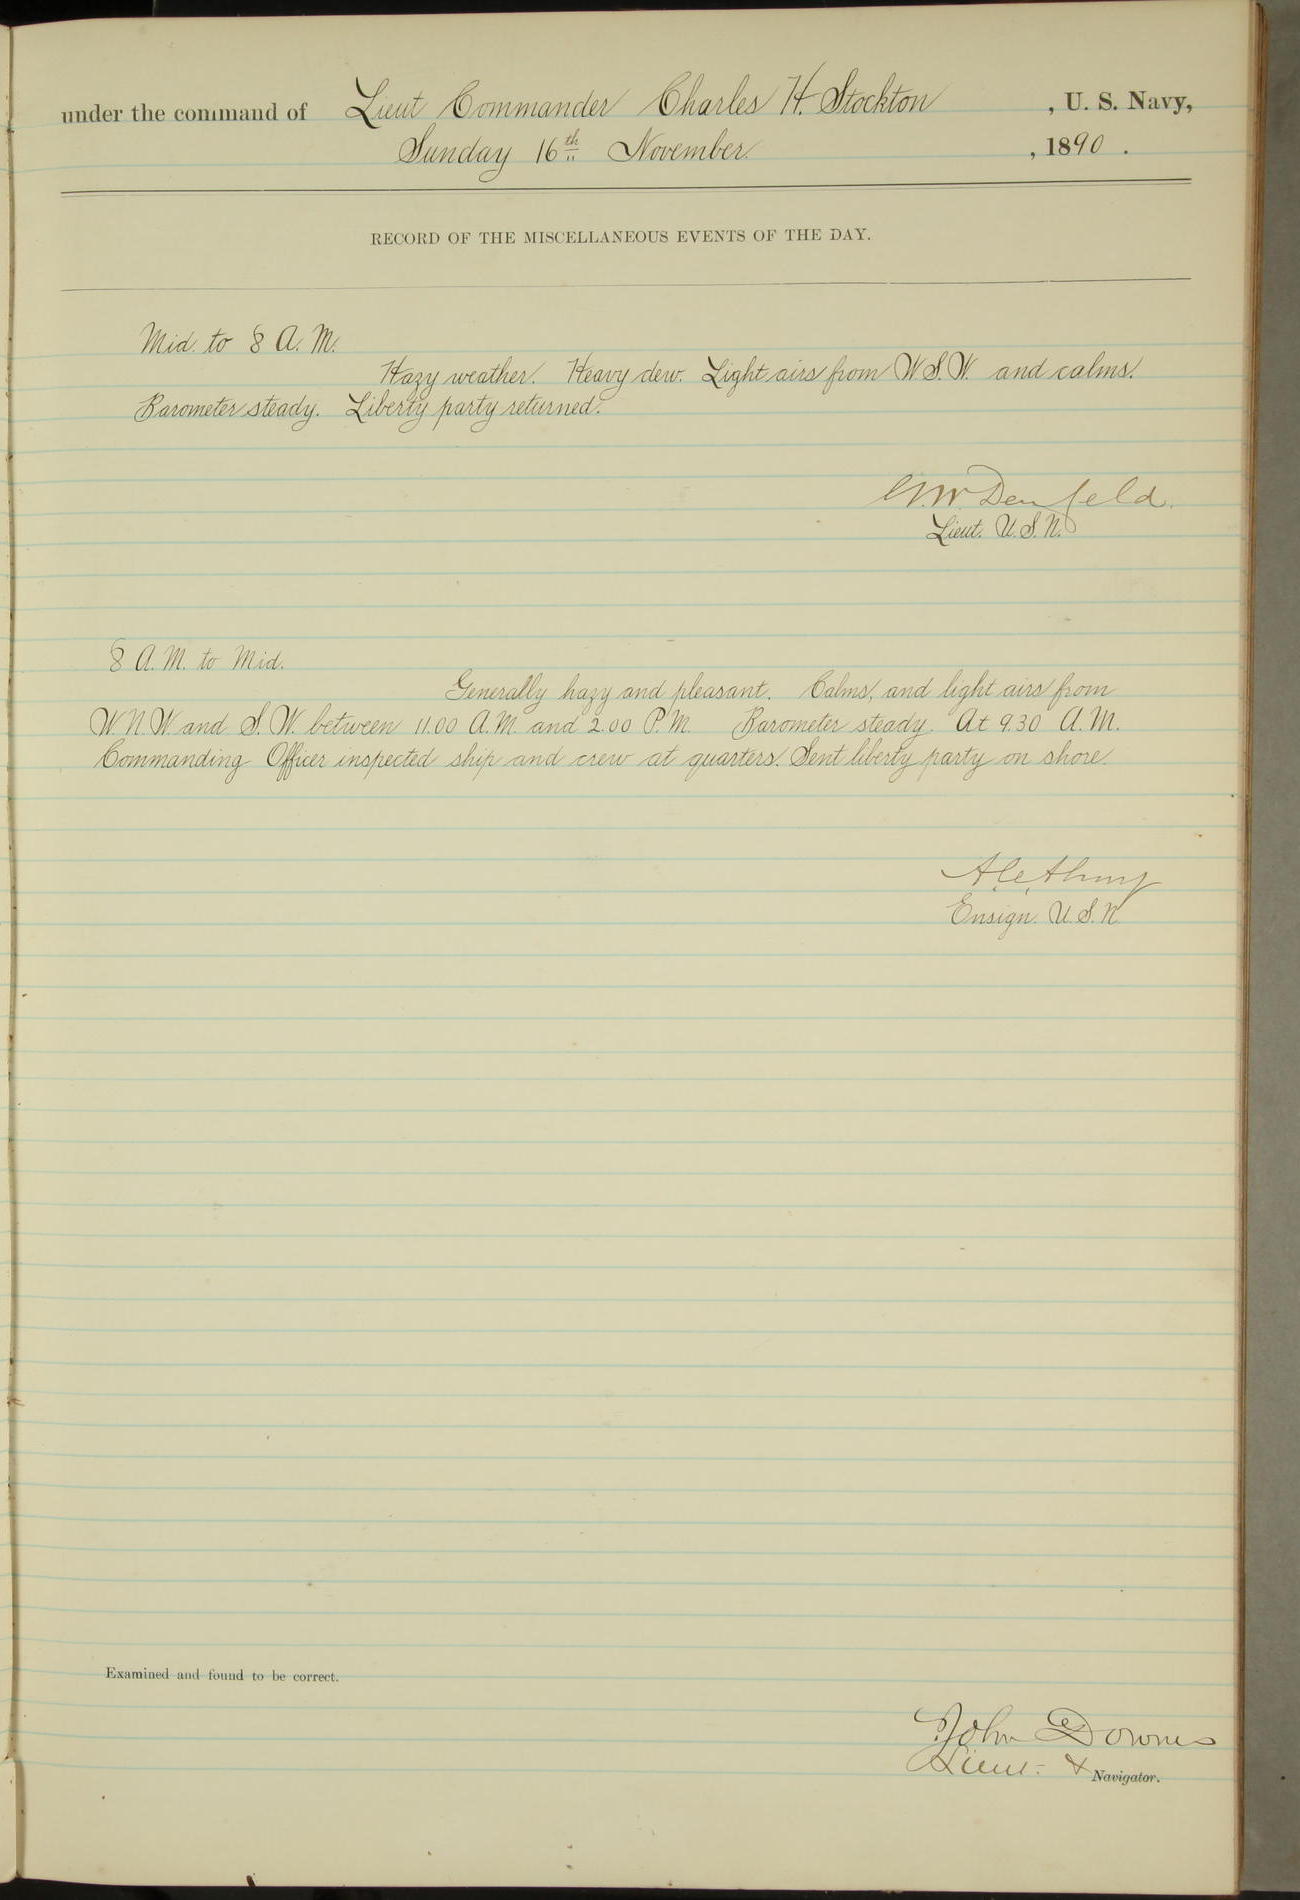 under the command of Lieut Commander Charles H. Stockton, U. S. Navy,
Sunday 16th November, 1890.
RECORD OF THE MISCELLANEOUS EVENTS OF THE DAY.
Mid. to 8 A. M.
Hazy weather. Heavy dew. Light airs from W.S.W. and calms.
Barometer steady. Liberty party returned.
Denfeld.
Lieut. U.S.N.
8 A. M. to Mid.
Generally hazy and pleasant. Calms, and light airs from
W.N.W. and S.W. between 11.00 A.M. and 2.00 P.M. Barometer steady. At 9.30 A.M.
Commanding Officer inspected ship and crew at quarters. Sent liberty party on shore.
Ensign. U.S.N.
Examined and found to be correct.
John Downes
Lieut. & Navigator.